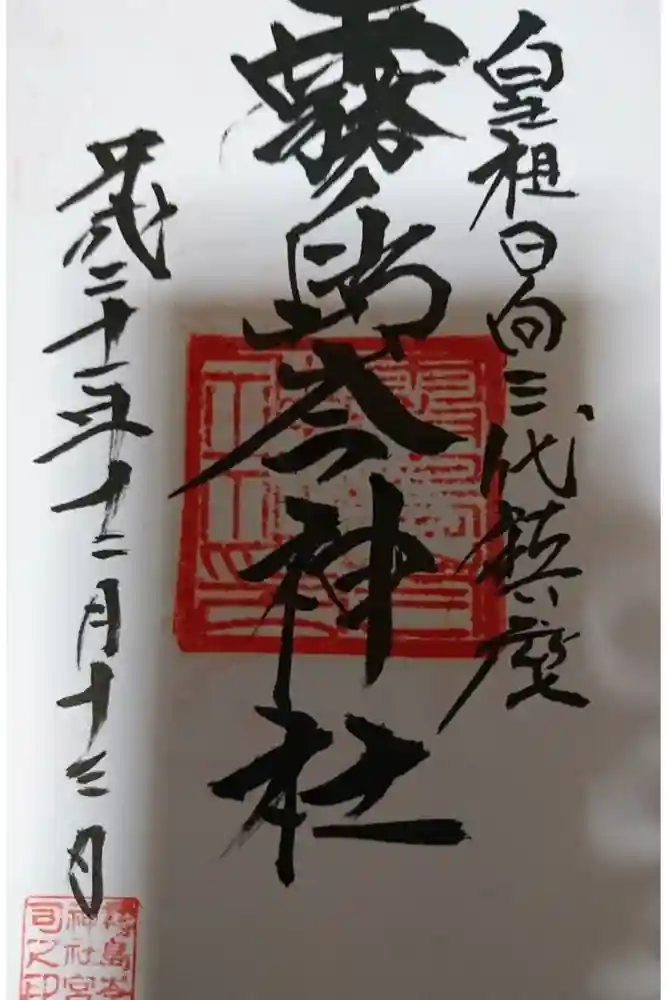 皇祖日向三代鎮座
霧島岑神社
平成二十五年十二月十三日
霧島岑
神社宮
司之印